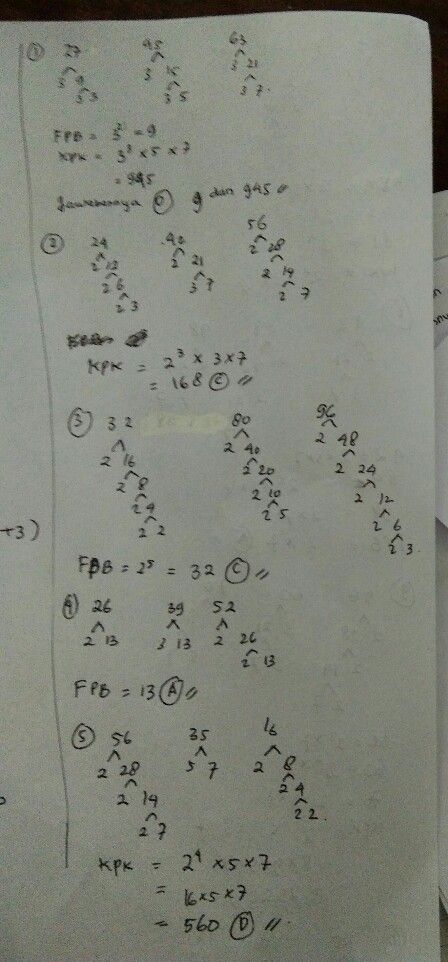 ① 27 45 63
3 9 3 15 3 21
3 3 3 5 3 7
FPB = 3² = 9
KPK = 3³ × 5 × 7
= 945
Jawabannya 9 dan 945 //
② 24 42 56
2 12 2 21 2 28
2 6 3 7 2 14
2 3 2 7
KPK = 2³ × 3 × 7
= 168 Ⓒ //
③ 32 80 96
2 16 2 40 2 48
2 8 2 20 2 24
2 4 2 10 2 12
2 2 2 5 2 6
2 3
+3)
FPB = 2⁵ = 32 Ⓒ //
④ 26 39 52
2 13 3 13 2 26
2 13
FPB = 13 Ⓐ //
⑤ 56 35 16
2 28 5 7 2 8
2 14 2 4
2 7 2 2
KPK = 2⁴ × 5 × 7
= 16 × 5 × 7
= 560 Ⓓ //